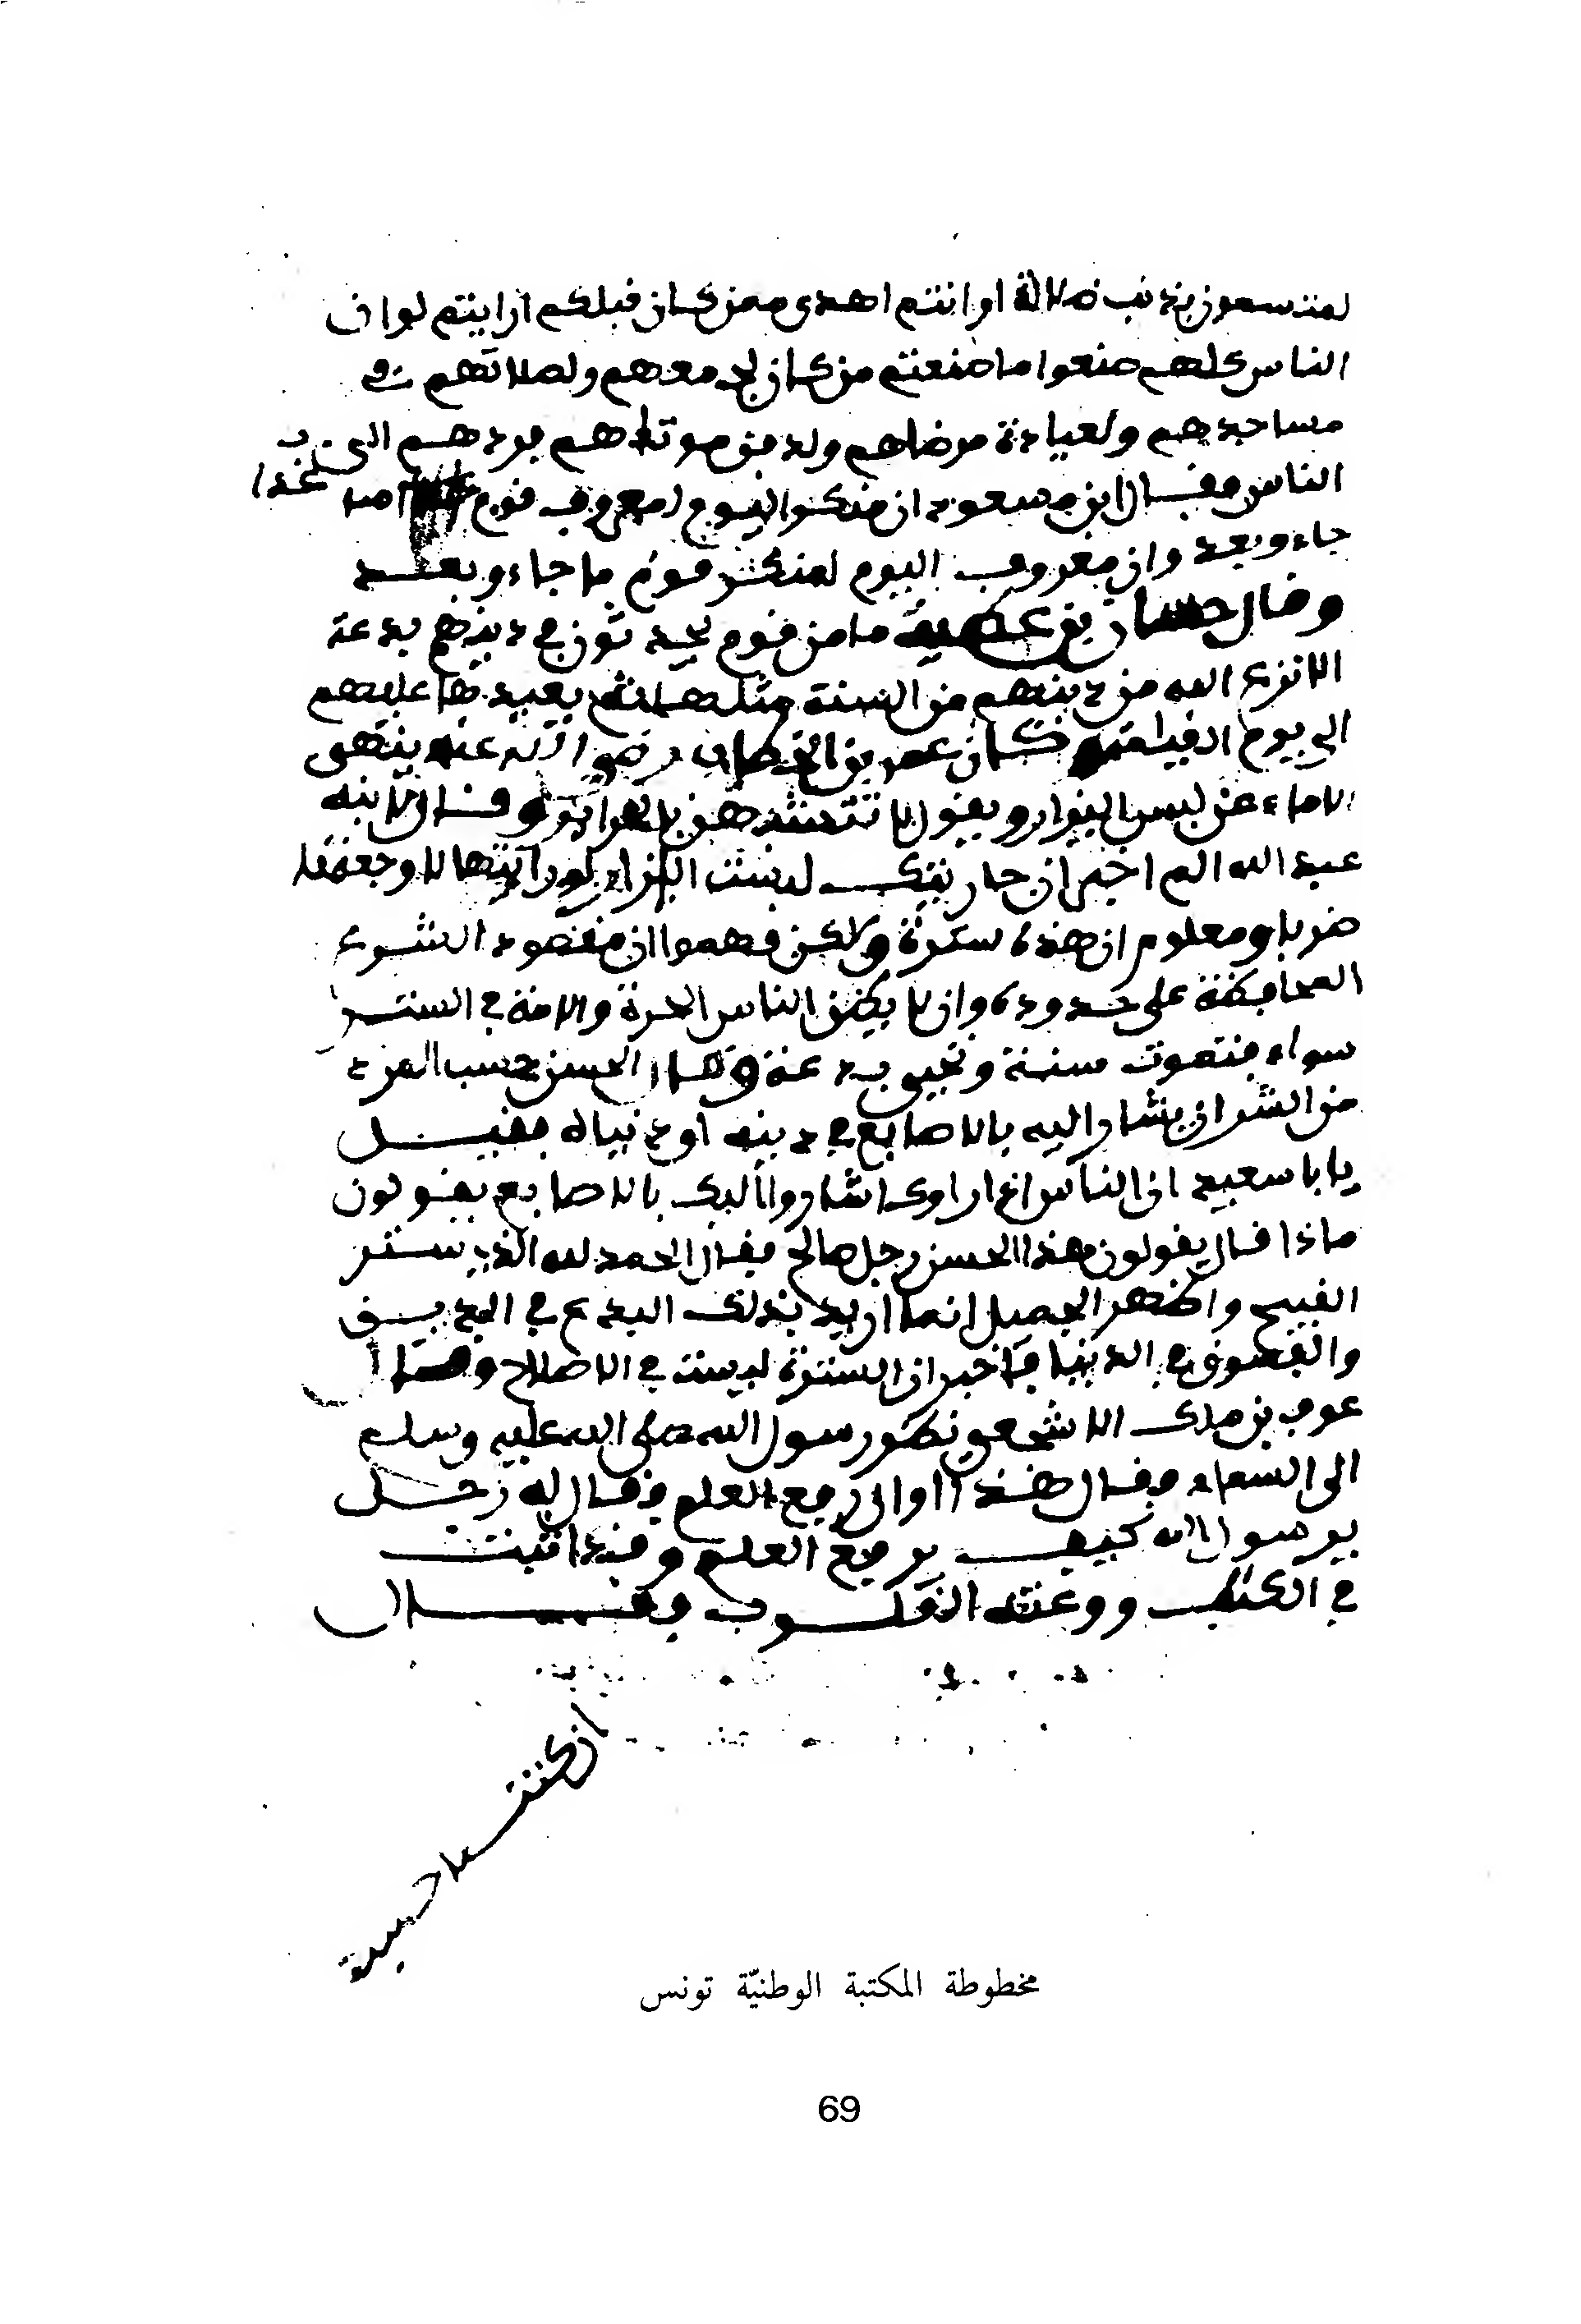 لمتمسكون بذنب ضلالة او انتم اهدى ممن كان قبلكم ارايتم لو ان
الناس كلهم صنعوا ما صنعتم من كان لجمعهم ولصلاتهم في
مساجدهم ولعيادة مرضاهم ولدفن موتاهم فردهم الى
الناس وقال ابن مسعود ان منكر اليوم لمعروف قوم ما
جاء وبعد وان معروف اليوم لمنكر قوم ما جاء وبعد
وقال حسان بن عطية ما من قوم يحدثون في دينهم بدعة
الا نزع الله من دينهم من السنة مثلها ثم لا يعيدها عليهم
الى يوم القيامة وكان عمر بن الخطاب رضي الله عنه ينهى
الاماء عن لبس الازار ويقول لا تتشبهن بالحرائر وقال لابنه
عبد الله الم اخبر ان جاريتك لبست الازار لو رايتها لاوجعتها
ضربا ومعلوم ان هذه سترة ولكن فهموا ان مقصود الشرع
المحافظة على حدوده وان لا يظن الناس الحرة والامة في الستر
سواء فتموت سنة وتحيى بدعة وقال الحسن حسب المرء
من الشر ان يشار اليه بالاصابع في دينه او دنياه فقيل
يابا سعيد ان الناس اذا راوك اشاروا اليك بالاصابع يقولون
ماذا قال يقولون هذا الحسن رجل صالح فقال الحمد لله الذي ستر
القبيح واظهر الجميل انما اريد بذلك البدع في الدين
والفسوق في الدنيا فاخبر ان السترة ليست في الاصلاح وقال
عوف بن ملك الاشجعي نظر رسول الله صلى الله عليه وسلم
الى السماء فقال هذا اوان رفع العلم فقال له رجل
يرسول الله كيف يرفع العلم وقد اثبت
في الكتب ووعته القلوب فقال
ان كنت لاحسبك
مخطوطة المكتبة الوطنيّة تونس
69